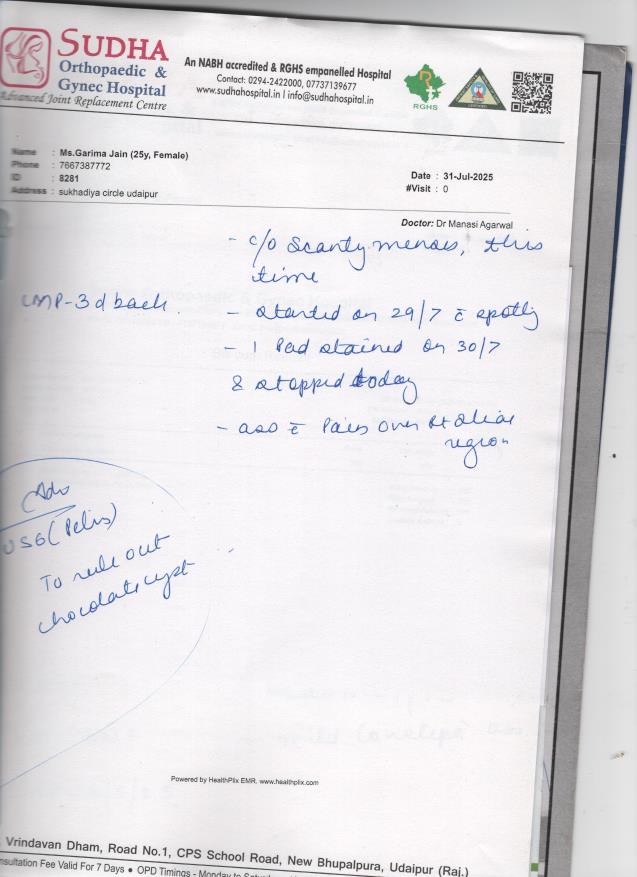 SUDHA
Orthopaedic &
Gynec Hospital
Advanced Joint Replacement Centre
An NABH accredited & RGHS empanelled Hospital
Contact: 0294-2422000, 07737139677
www.sudhahospital.in I info@sudhahospital.in
RGHS
Name : Ms.Garima Jain (25y, Female)
Phone : 7667387772
ID : 8281
Address : sukhadiya circle udaipur
Date : 31-Jul-2025
#Visit : 0
Doctor: Dr Manasi Agarwal
- c/o Scanty menses, this
time
LMP-3d back.
- started on 29/7 c̄ spotting
- 1 Pad stained on 30/7
& stopped today
- aso c̄ Pain over Rt iliac
region
Adv
USG (Pelvis)
To rule out
chocolate cyst
Powered by HealthPlix EMR. www.healthplix.com
, Vrindavan Dham, Road No.1, CPS School Road, New Bhupalpura, Udaipur (Raj.)
nsultation Fee Valid For 7 Days ● OPD Timings - Monday to